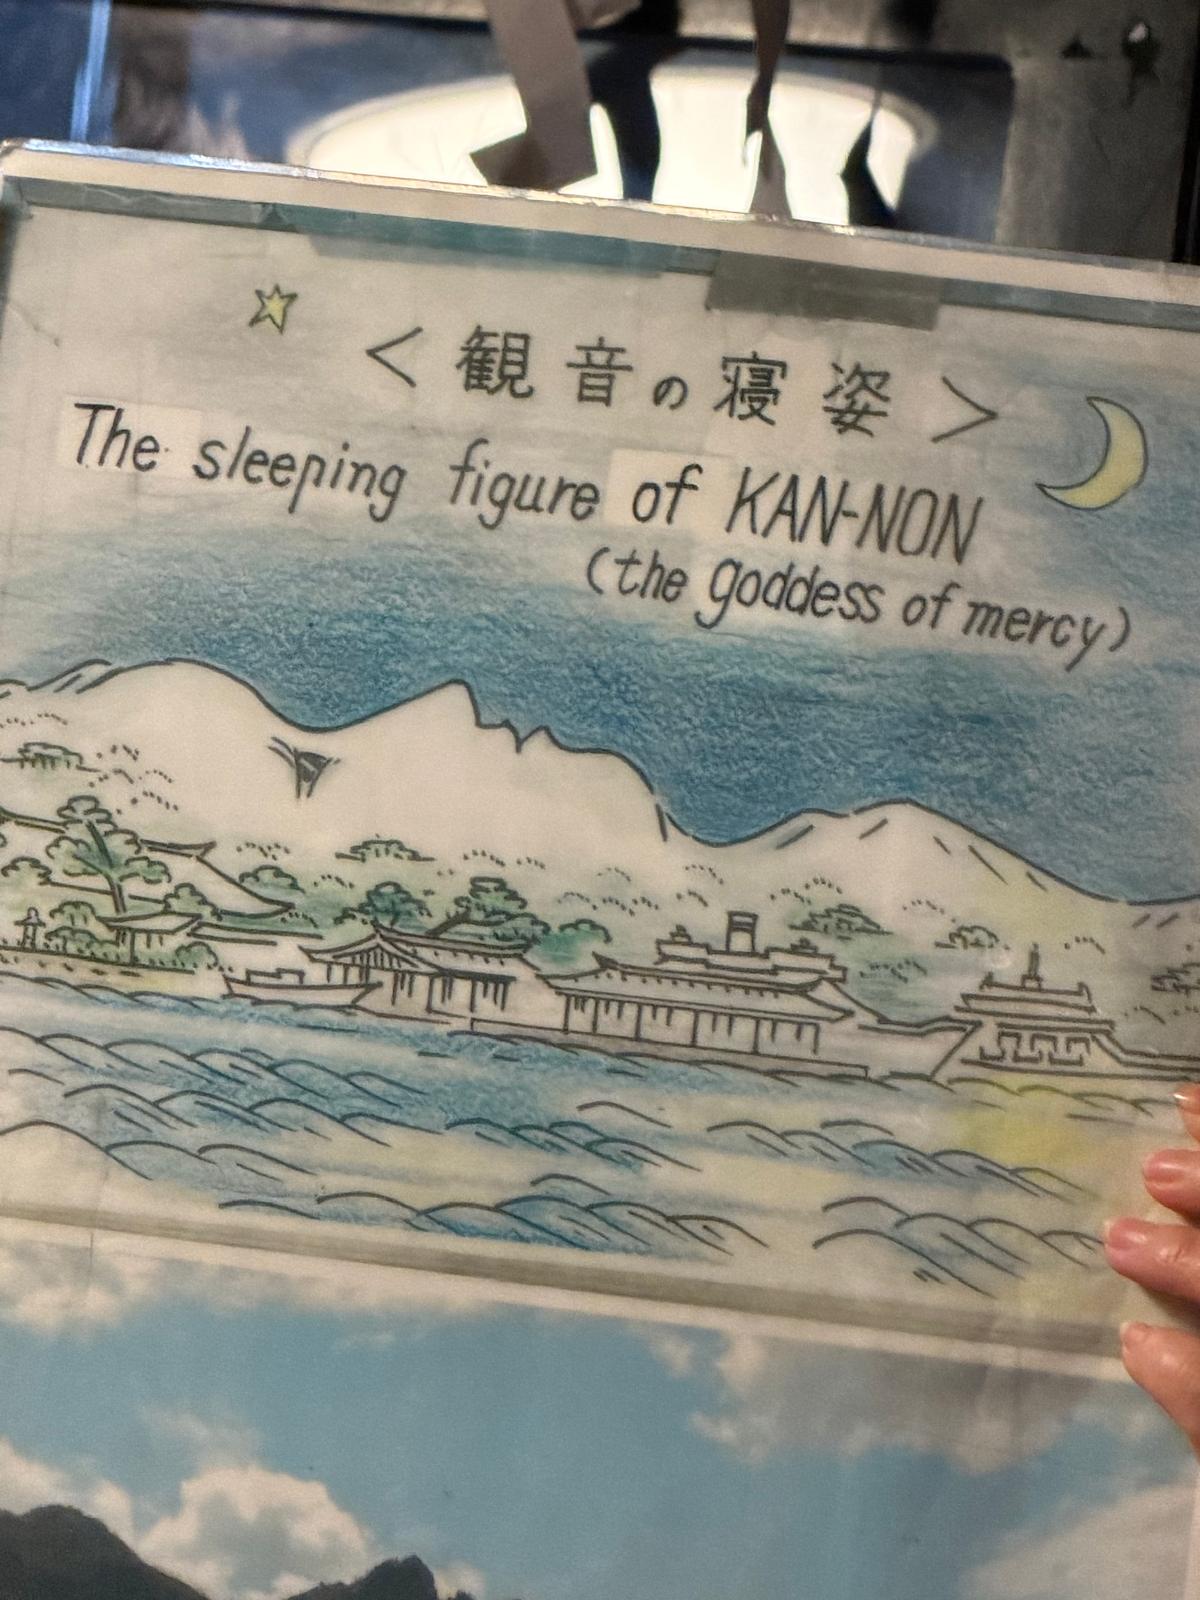 <観音の寝姿>
The sleeping figure of KAN-NON
(the goddess of mercy)